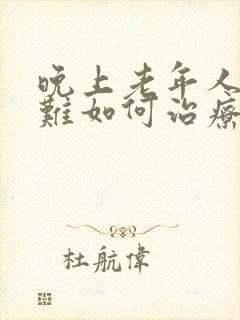 晚上老年人
難如何治療
杜航偉